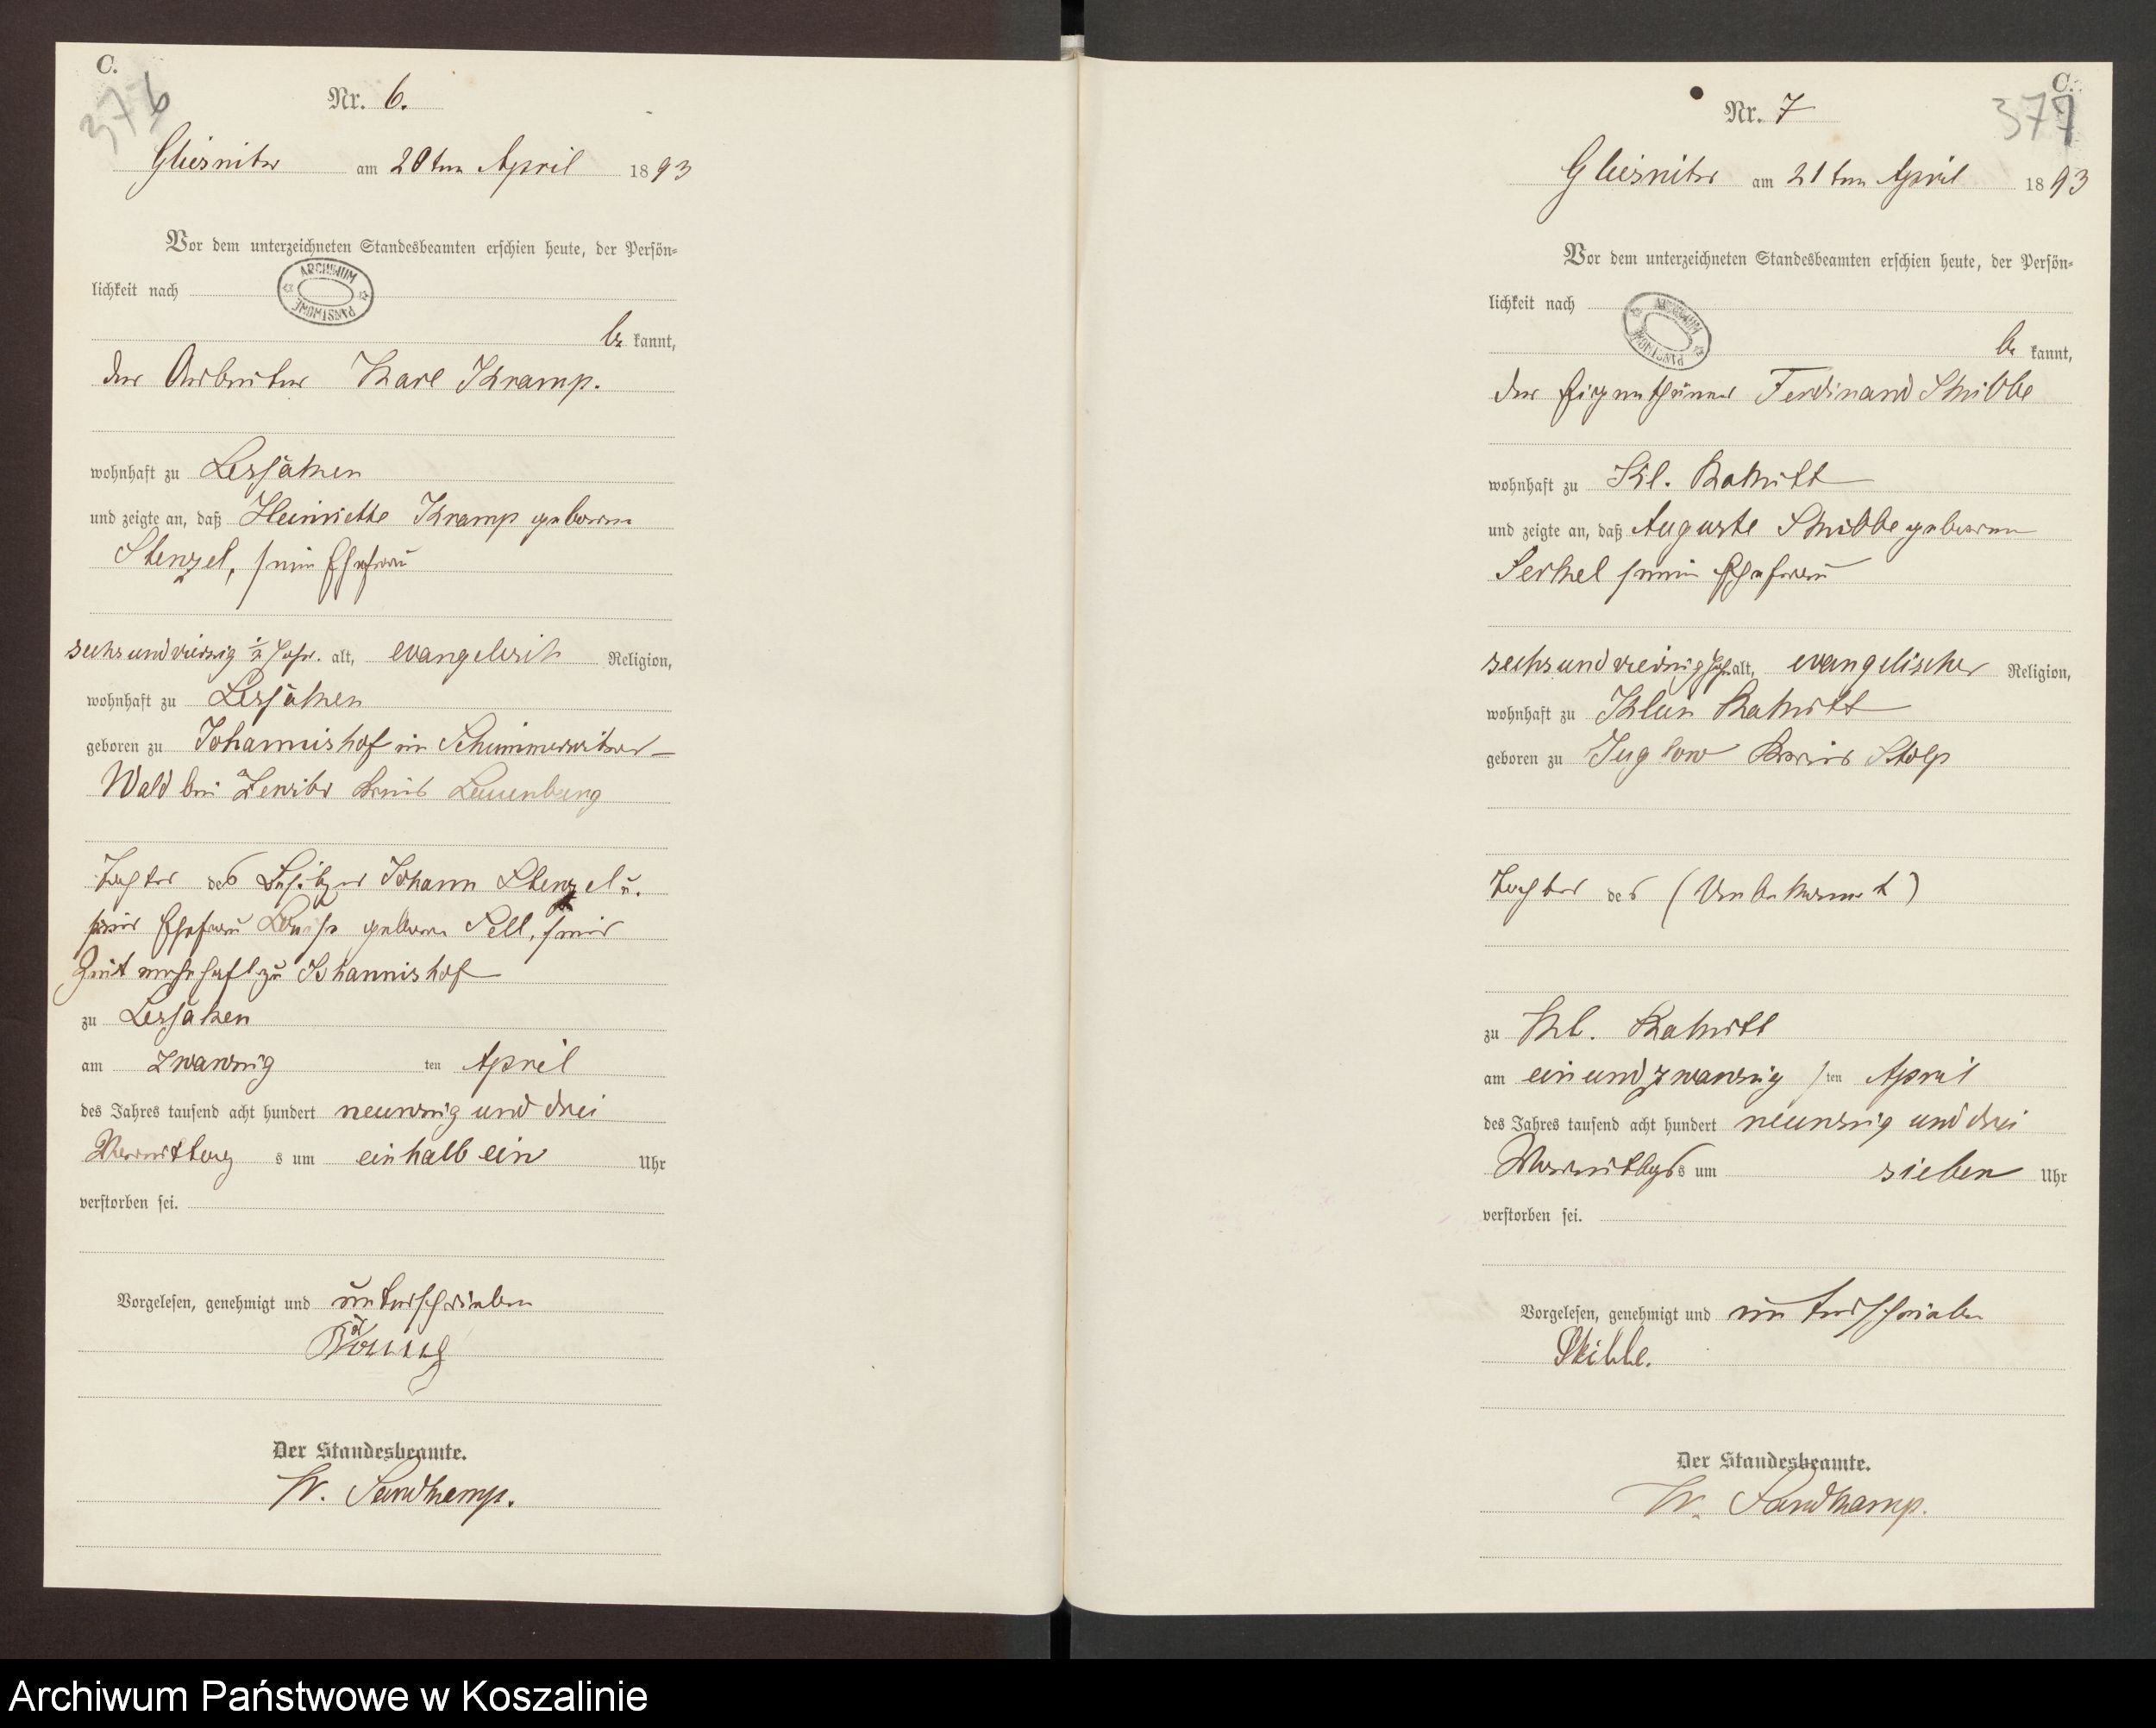 C.
376
Nr. 6.
Gliesnitz am 20ten April 1893
Vor dem unterzeichneten Standesbeamten erschien heute, der Persön-
lichkeit nach
ARCHIWUM PAŃSTWOWE
be kannt,
der Arbeiter Karl Kramp.
wohnhaft zu Lersaken
und zeigte an, daß Heinriette Kramp geborene
Stenzel, seine Ehefrau
sechsundvierzig ½ Jahr. alt, evangelisch Religion,
wohnhaft zu
geboren zu Johannishof im
Wald bei Zewitz Kreis Lauenburg
Tochter des Besitzer Johann Stenzel u.
seiner Ehefrau Louise geborene Sell, seiner
Zeit wohnhaft zu Johannishof
zu
am zwanzig ten April
des Jahres tausend acht hundert neunzig und drei
Vormittag s um einhalb ein Uhr
verstorben sei.
Vorgelesen, genehmigt und unterschrieben
Der Standesbeamte.
W. Sandkamp.
C.
377
Nr. 7
Gliesnitz am 21ten April 1893
Vor dem unterzeichneten Standesbeamten erschien heute, der Persön-
lichkeit nach
ARCHIWUM PAŃSTWOWE
be kannt,
der Eigenthümer Ferdinand Skibbe
wohnhaft zu Kl. Rakitt
und zeigte an, daß Auguste Skibbe geborene
seine Ehefrau
sechsundvierzig Jahr alt, evangelischer Religion,
wohnhaft zu Klein Rakitt
geboren zu Juglow Kreis Stolp
Tochter des (Unbekannt)
zu Kl. Rakitt
am einundzwanzig sten April
des Jahres tausend acht hundert neunzig und drei
Vormittags s um sieben Uhr
verstorben sei.
Vorgelesen, genehmigt und unterschrieben
Skibbe.
Der Standesbeamte.
W. Sandkamp.
Archiwum Państwowe w Koszalinie